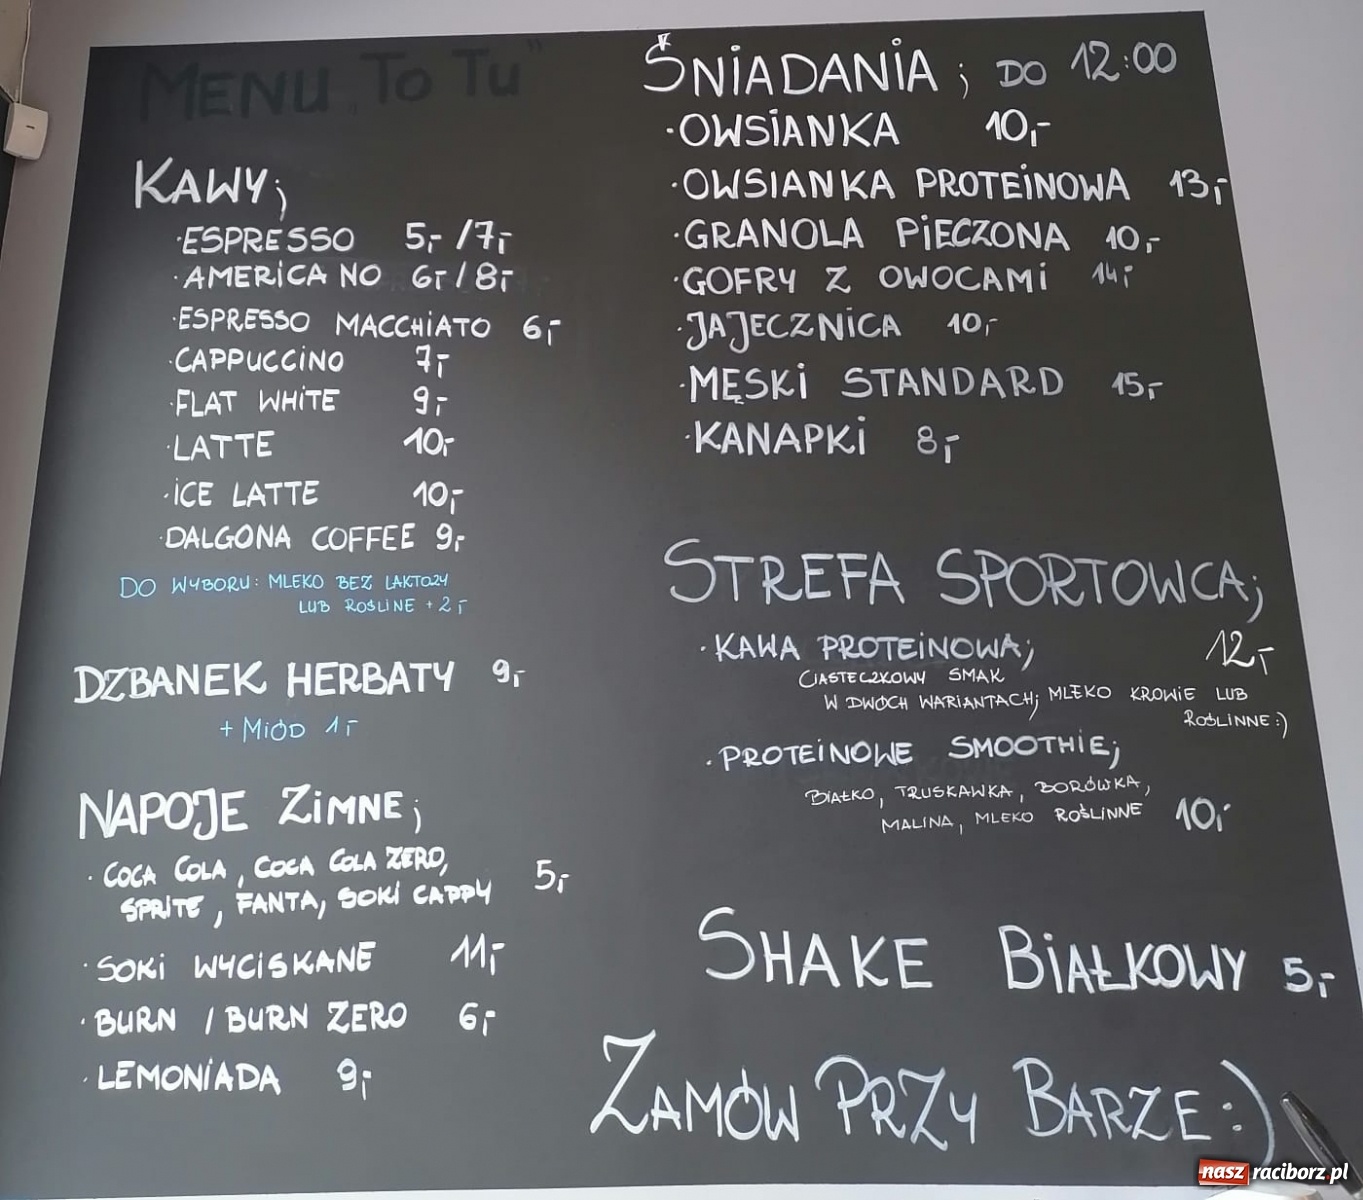 MENU „TO TU"
KAWY;
·ESPRESSO 5,- /7,-
·AMERICANO 6,- / 8,-
·ESPRESSO MACCHIATO 6,-
·CAPPUCCINO 7,-
·FLAT WHITE 9,-
·LATTE 10,-
·ICE LATTE 10,-
·DALGONA COFFEE 9,-
DO WYBORU: MLEKO BEZ LAKTOZY
LUB ROŚLINE + 2,-
DZBANEK HERBATY 9,-
+ MIÓD 1,-
NAPOJE ZIMNE;
·COCA COLA, COCA COLA ZERO,
SPRITE, FANTA, SOKI CAPPY 5,-
·SOKI WYCISKANE 11,-
·BURN / BURN ZERO 6,-
·LEMONIADA 9,-
ŚNIADANIA; DO 12:00
·OWSIANKA 10,-
·OWSIANKA PROTEINOWA 13,-
·GRANOLA PIECZONA 10,-
·GOFRY Z OWOCAMI 14,-
·JAJECZNICA 10,-
·MĘSKI STANDARD 15,-
·KANAPKI 8,-
STREFA SPORTOWCA;
·KAWA PROTEINOWA; 12,-
CIASTECZKOWY SMAK
W DWÓCH WARIANTACH; MLEKO KROWIE LUB
ROŚLINNE :)
·PROTEINOWE SMOOTHIE;
BIAŁKO, TRUSKAWKA, BORÓWKA,
MALINA, MLEKO ROŚLINNE 10,-
SHAKE BIAŁKOWY 5,-
ZAMÓW PRZY BARZE :)
nasz raciborz.pl